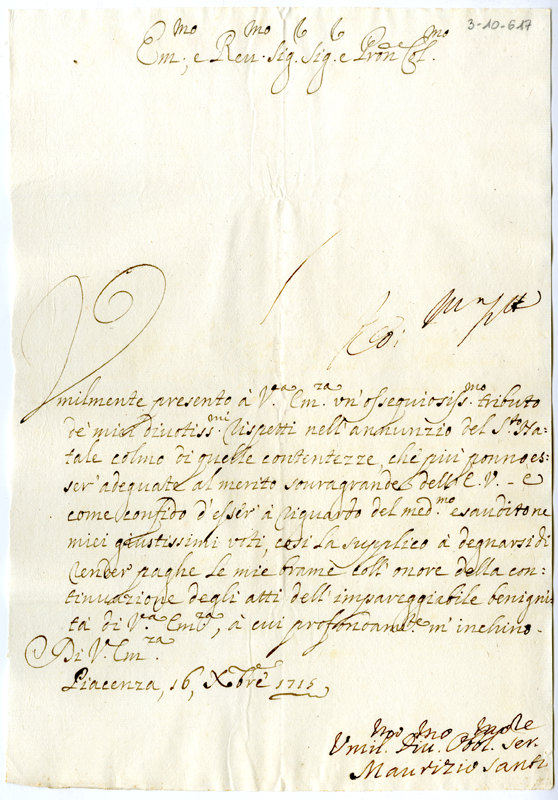 3-10-617
Em.mo, e Reu.mo Sig.r Sig.r e Pron.e Col.mo
Vmilmente presento à V.ra Em.za vn' ossequiosiss.mo tributo
de' miei diuotiss.mi Rispetti nell'annunzio del S.to Na=
tale colmo di quelle contentezze, che più ponno es=
ser' adeguate al merito souragrande dell'E. V. - e
come confido d'esser' à riguardo del med.mo esaudito ne
miei giustissimi voti, così la supplico à degnarsi di
render paghe le mie brame coll'onore della con=
tinuazione degli atti dell'impareggiabile benigni
tà di V.ra Em.za, à cui profondam.te m'inchino.
Di V.ra Em.za
Piacenza, 16, Xbre 1715
Vmil.mo Diu.mo Obbl. Ser.
Maurizio Santi